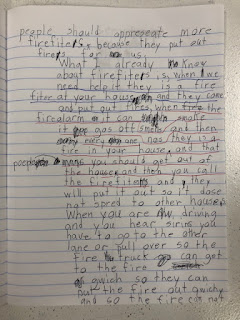 people should apprepeate more
firefiters, because they put out
fires for us.
What I already know
about firefiters is, when we
need help if they is a fire
fitre at your house, and they come
and put out fires, when fire the
firealarm it can smoke
it gas off and then
has they is a
fire in your house, and that
means you should get out of
the house, and then you call
the firefiters and, they
will put it out so it dose
not spred to other houses,
When you are driving
and you hear sirins you
have to go to the other
lane or pull over so the
fire truck can get
to the fire
qwich so they can
put the fire out qwichly
and so the fire do not